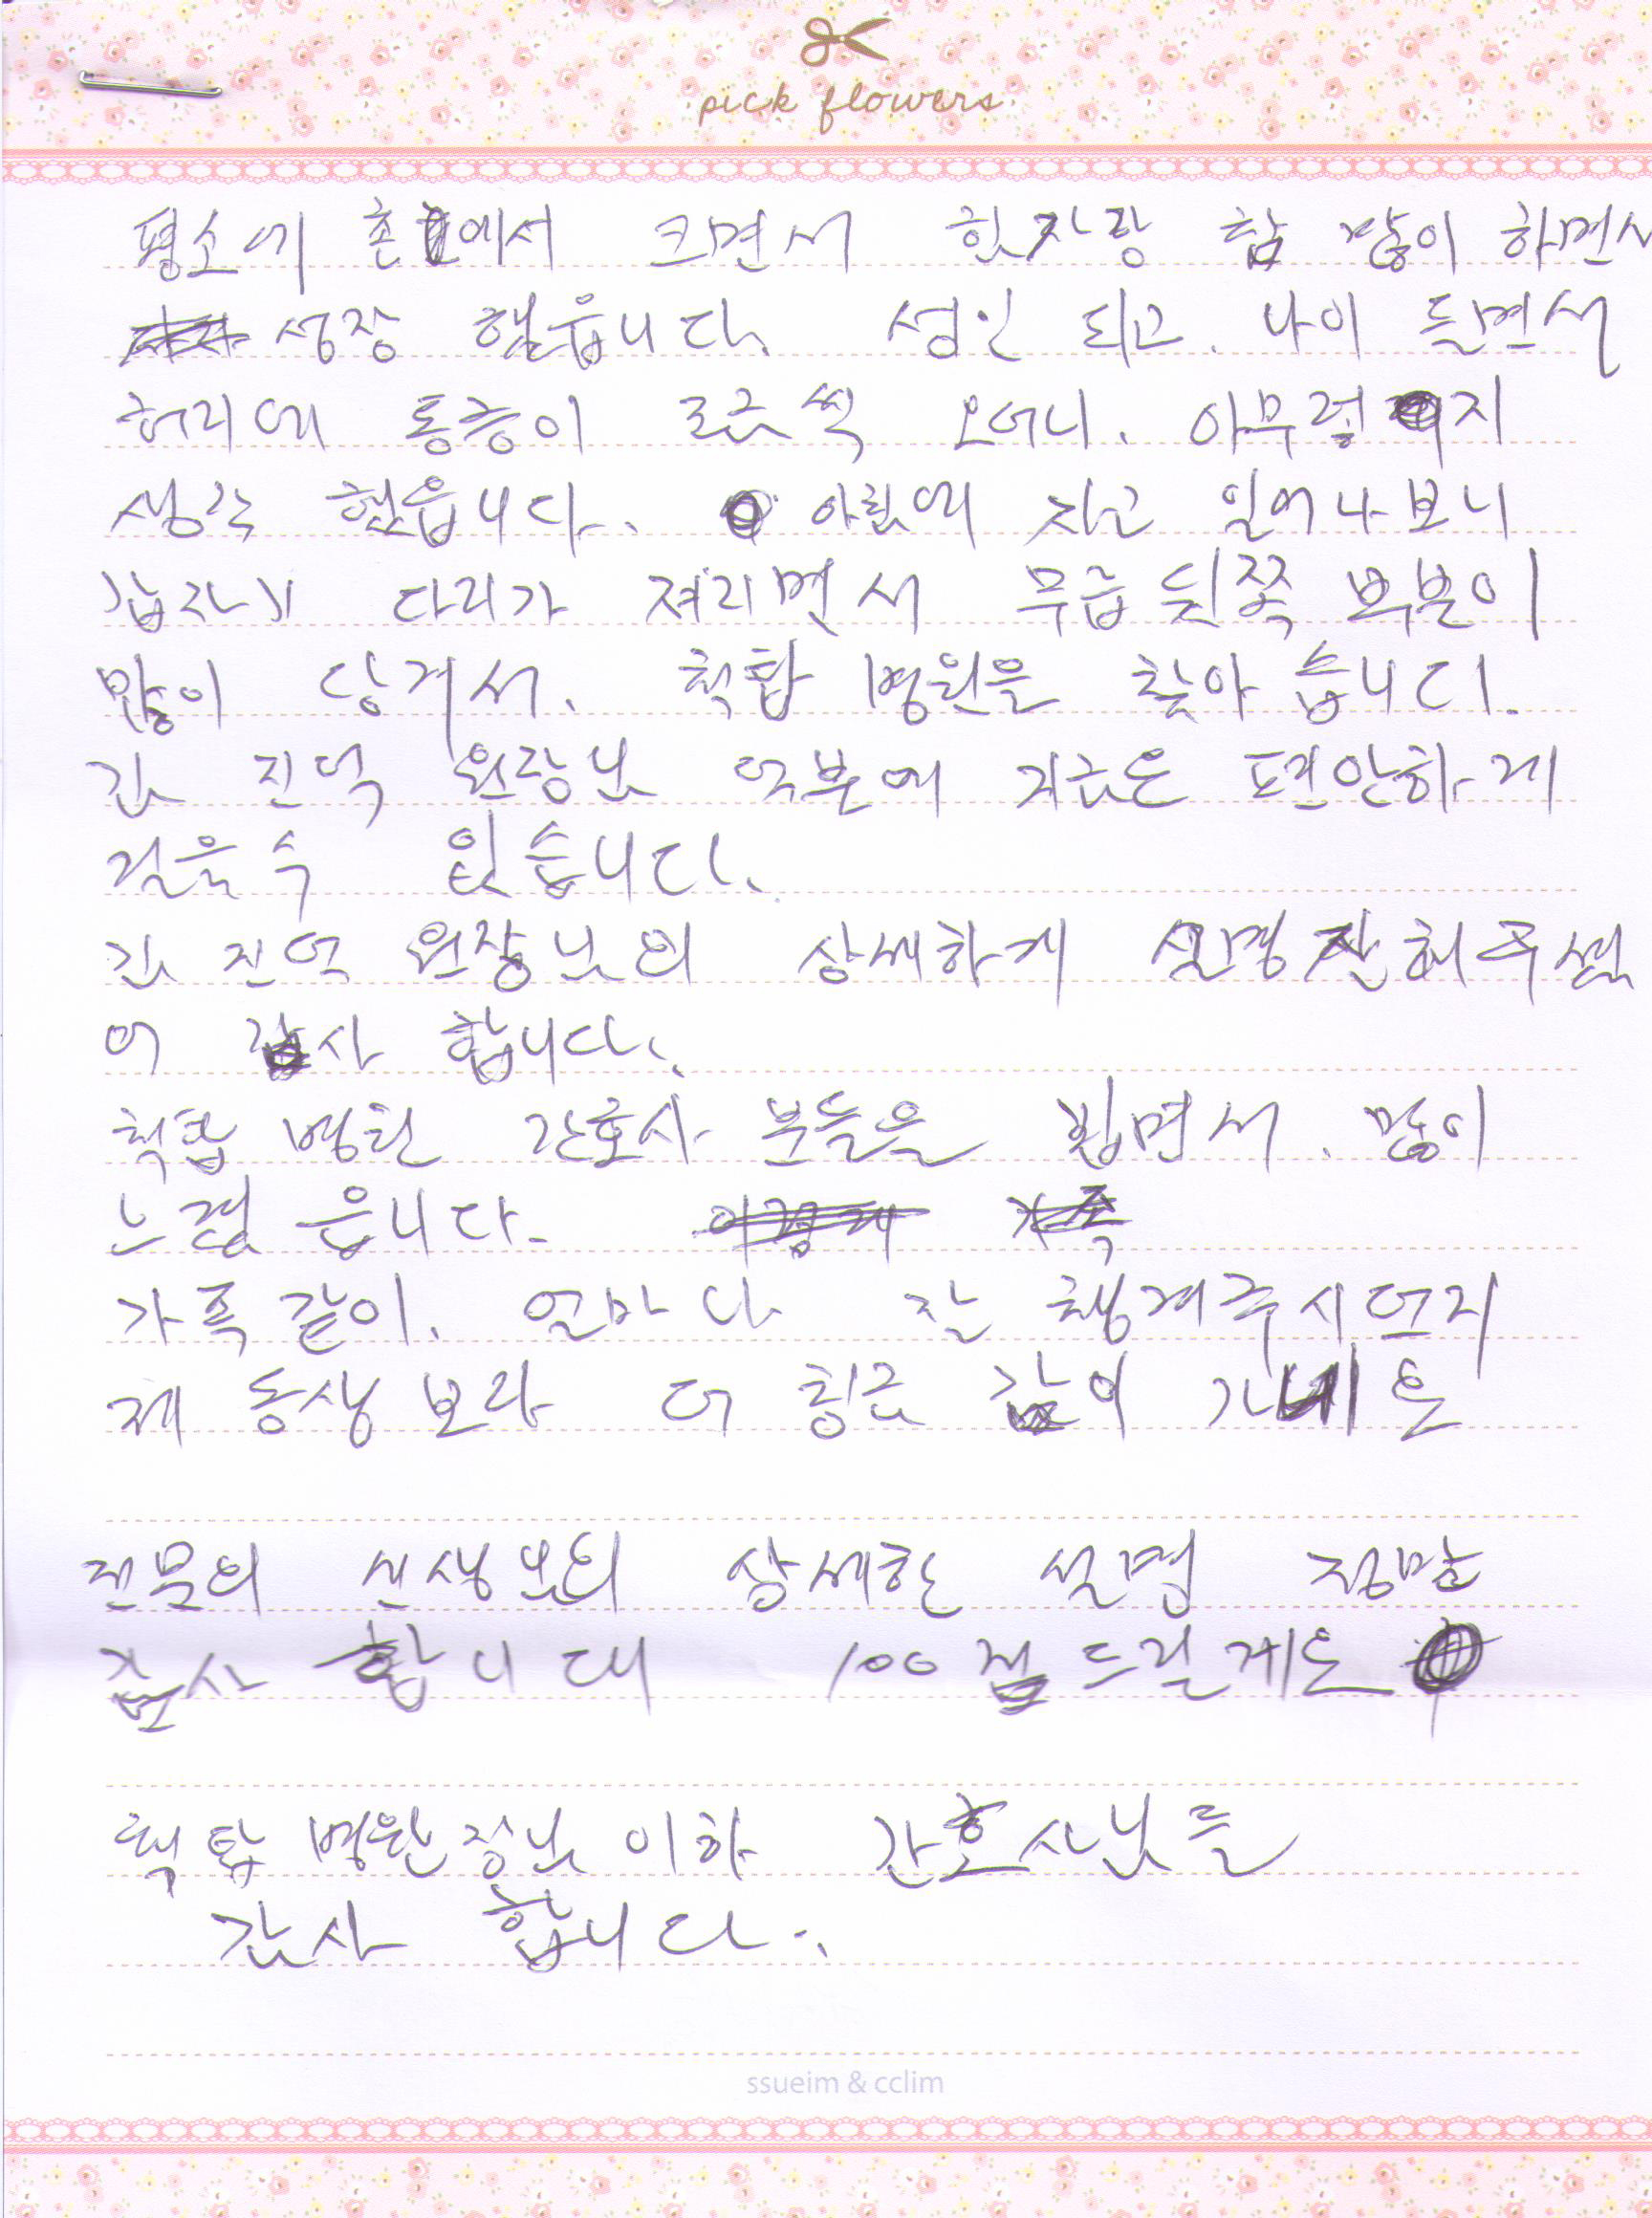 pick flowers
평소에 촌에서 크면서 힛자랑 참 많이 하면서
성장 했읍니다. 성인 되고. 나이 들면서
허리에 통증이 조금씩 오더니. 아무렇지
생각 했읍니다. 아침에 자고 일어나보니
갑자기 다리가 져리면서 무릎 뒷쪽 부분이
많이 당겨서. 척탑 병원을 찾아 습니다.
김 진억 원장님 덕분에 지금은 편안하게
걸을 수 있습니다.
김 진억 원장님의 상세하게 설명 잘 해주셨
어 감사 합니다.
척탑 병원 간호사 분들을 뵙면서. 많이
느꼈읍니다.
가족 같이. 얼마나 잘 챙겨주시던지
제 동생 보라 더 칭금 같이
전문의 선생님의 상세한 설명 정말
감사 합니대 100점 드릴게요
척탑 병원장님 이하 간호사님들
감사 합니다.
ssueim & cclim